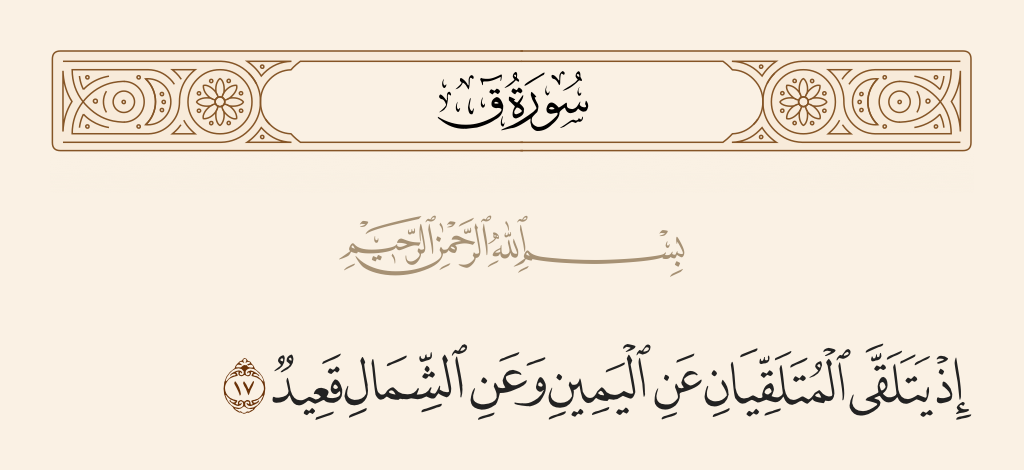 سُورَةُ قٓ
بِسْمِ ٱللَّهِ ٱلرَّحْمَٰنِ ٱلرَّحِيمِ
إِذْ يَتَلَقَّى ٱلْمُتَلَقِّيَانِ عَنِ ٱلْيَمِينِ وَعَنِ ٱلشِّمَالِ قَعِيدٌ ١٧